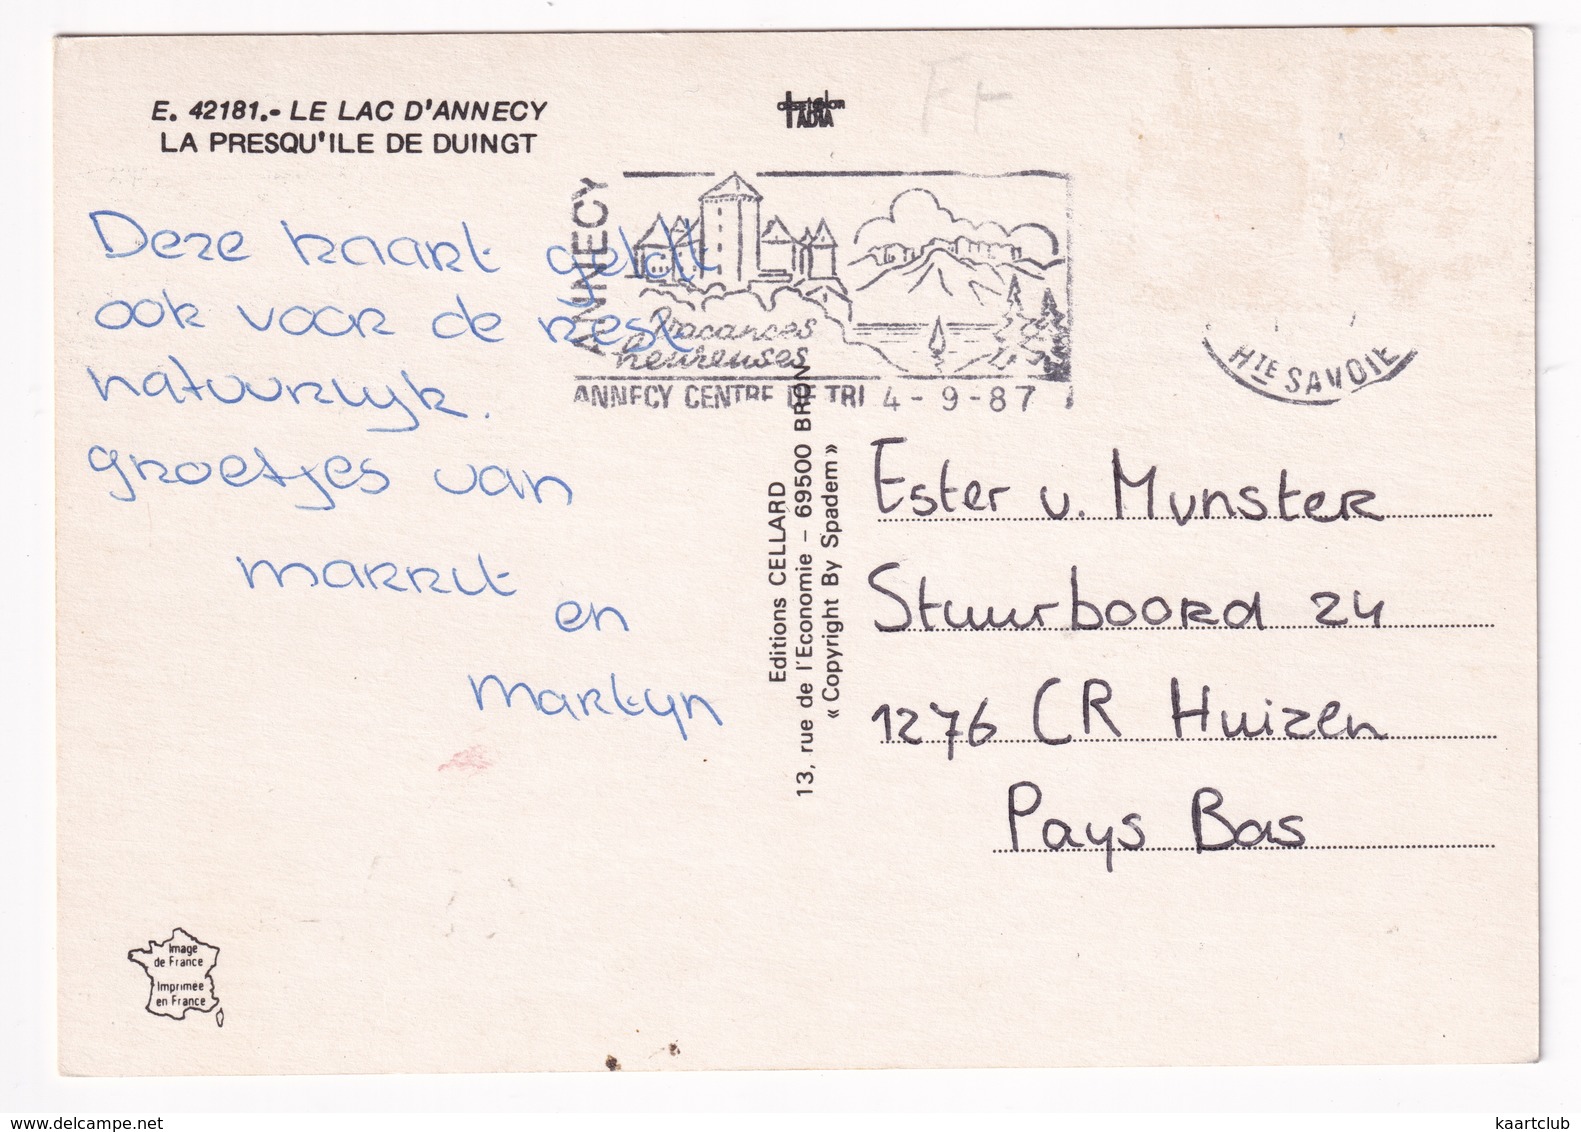 E. 42181.- LE LAC D'ANNECY
LA PRESQU'ILE DE DUINGT
ANNECY
Vacances
heureuses
ANNECY CENTRE DE TRI 4-9-87
HTE SAVOIE
Deze kaart geldt
ook voor de rest
natuurlijk.
groetjes van
marrit
en
Martijn
Editions CELLARD
13, rue de l'Economie – 69500 BRON
« Copyright By Spadem »
Ester v. Munster
Stuurboord 24
1276 CR Huizen
Pays Bas
Image
de France
Imprimée
en France
www.delcampe.net
kaartclub